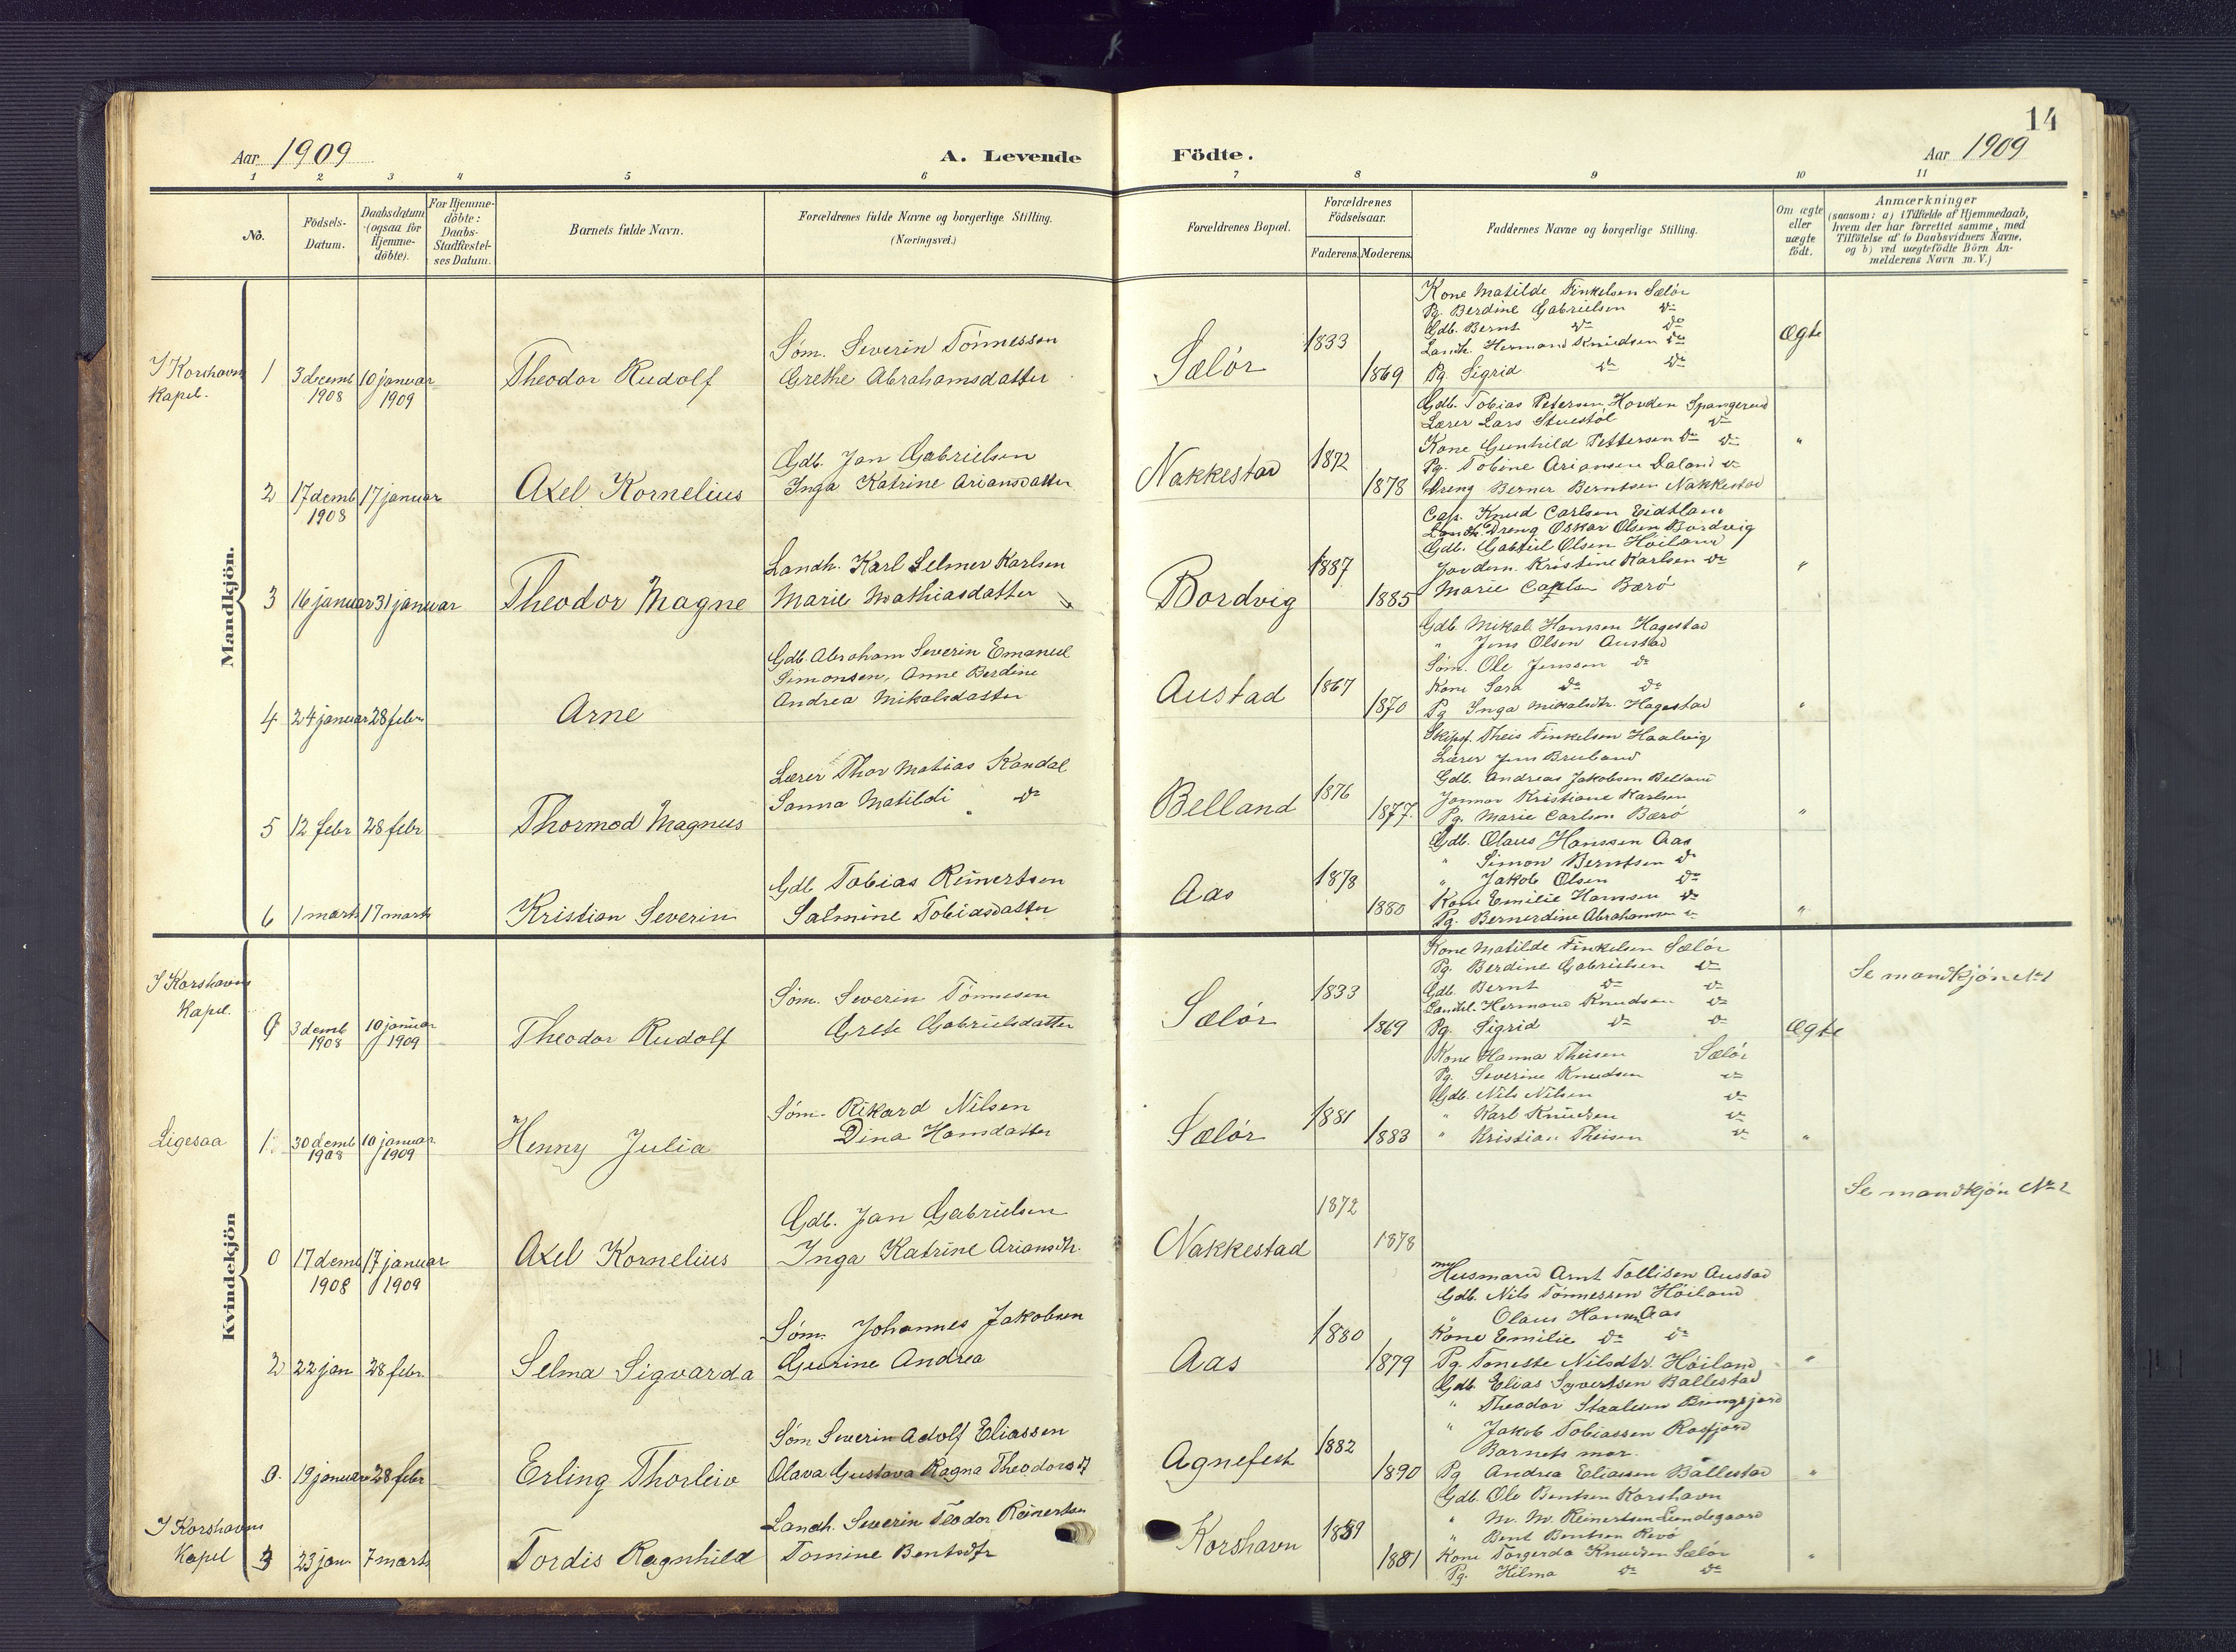 14
Aar 1909
A. Levende
Födte.
Aar 1909
1 2 3 4 5 6 7 8 9 10 11
No.
Födsels-
Datum.
Daabsdatum
(ogsaa for
Hjemme-
döbte).
For Hjemme-
döbte:
Daabs-
Stadfæstel-
ses Datum.
Barnets fulde Navn.
Forældrenes fulde Navne og borgerlige Stilling.
(Næringsvei.)
Forældrenes Bopæl.
Forældrenes
Födselsaar.
Faderens. Moderens.
Faddernes Navne og borgerlige Stilling.
Om ægte
eller
uægte
födt.
Anmærkninger
(saasom: a) i Tilfælde af Hjemmedaab,
hvem der har forrettet samme, med
Tilföielse af to Daabsvidners Navne,
og b) ved uægtefödte Börn An-
melderens Navn m. V.)
Mandkjön.
I Korshavn
Kapel.
1 3 decemb 10 januar
1908 1909
Theodor Rudolf
Söm. Severin Tönnessen
Grethe Abrahamsdatter
Sælör
1833
1869
Kone Matilde Finkelsen Sælör
Pg. Berdine Gabrielsen do
Gdb. Bernt do do
Landh. Hermand Knudsen do
Pg. Sigrid do do
Ægte
2 17 demb 17 januar
1908
Axel Kornelius
Gdb. Jan Gabrielsen
Inga Katrine Ariansdatter
Nakkestad
1872
1878
Gdb. Tobias Petersen Hovden Spangereid
Lærer Lars Stuestöl do
Kone Gunhild Pettersen do do
Pg. Tobine Ariansen Daland do
Dreng Berner Berntsen Nakkestad
"
3 16 januar 31 januar
Theodor Magne
Landh. Karl Selmer Karlsen
Marie Mathiasdatter
Bordvig
1887
1885
Cap. Knud Carlsen Eidtland
Landh. Dreng Oskar Olsen Bordvig
Gdb. Gabriel Olsen Höiland
Jordm. Kristine Karlsen do
Marie Carlsen Bærö
"
4 24 januar 28 febr
Arne
Gdb. Abraham Severin Emanuel
Simonsen, Anne Berdine
Andrea Mikalsdatter
Austad
1867
1870
Gdb. Mikal Hansen Hagestad
" Jens Olsen Austad
Söm. Ole Jenssen do
Kone Sara do do
Pg Inga Mikalsdtr. Hagestad
"
5 12 febr 28 febr
Thormod Magnus
Lærer Thor Matias Kandal
Sanna Matildi do
Belland
1876
1877
Skipsf. Theis Finkelsen Haalvig
Lærer Jens Bruland
Gdb. Andreas Jakobsen Belland
Jonmor Kristiane Karlsen
Pg. Marie Carlsen Bærö
"
6 1 marts 17 marts
Kristian Severin
Gdb Tobias Reinertsen
Salmine Tobiasdatter
Aas
1878
1880
Gdb. Olaus Hanssen Aas
" Simon Berntsen do
" Jakob Olsen do
Kone Emilie Hansen do
Pg. Bernerdine Abrahamsen do
"
Kvindekjön
I Korshavns
Kapel.
0 3 demb 10 januar
1908 1909
Theodor Rudolf
Söm. Severin Tönnesen
Grete Gabrielsdatter
Sælör
1833
1869
Kone Matilde Finkelsen Sælör
Pg. Berdine Gabrielsen do
Gdb. Bernt do do
Landh. Hermand Knudsen do
Pg. Sigrid do do
Ægte
Se mandkjön No 1
Ligesaa
1. 30 demb 10 januar
1908 1909
Henny Julia
Söm. Rikard Nilsen
Dina Hansdatter
Sælör
1881
1883
Kone Hanna Theisen Sælör
Pg. Severine Knudsen do
Gdb. Nils Nilsen do
" Karl Knudsen do
" Kristian Theisen do
"
0 17 demb 17 januar
1908 1909
Axel Kornelius
Gdb. Jan Gabrielsen
Inga Katrine Ariansdtr.
Nakkestad
1872
1878
Se mandkjön No 2
2 22 jan 28 febr.
Selma Sigvarda
Söm. Johannes Jakobsen
Gurine Andrea
Aas
1880
1879
Husmand Arnt Tollisen Austad
Gdb. Nils Tönnessen Höiland
" Olaus Hansen Aas
Kone Emilie do do
Pg. Toneste Nilsdtr. Höiland
"
0. 19 januar 28 febr
Erling Thorleiv
Söm Severin Adolf Eliassen
Olava Gustava Ragna Theodorsd
Agnefest
1882
1890
Gdb. Elias Syvertsen Ballestad
" Theodor Staalesen Bringsjord
" Jakob Tobiassen Rosfjord
Barnets mor.
Pg Andrea Eliassen Ballestad
"
I Korshavns
Kapel
3 23 jan. 7 marts
Tordis Ragnhild
Landh. Severin Teodor Reinertsen
Tomine Bentsdtr
Korshavn
1881
Gdb. Ole Bentsen Korshavn
" M. M. Reinertsen Lundegaard
" Bent Bentsen Revö
Kone Torgerda Knudsen Sælör
Pg. Hilma do do
"